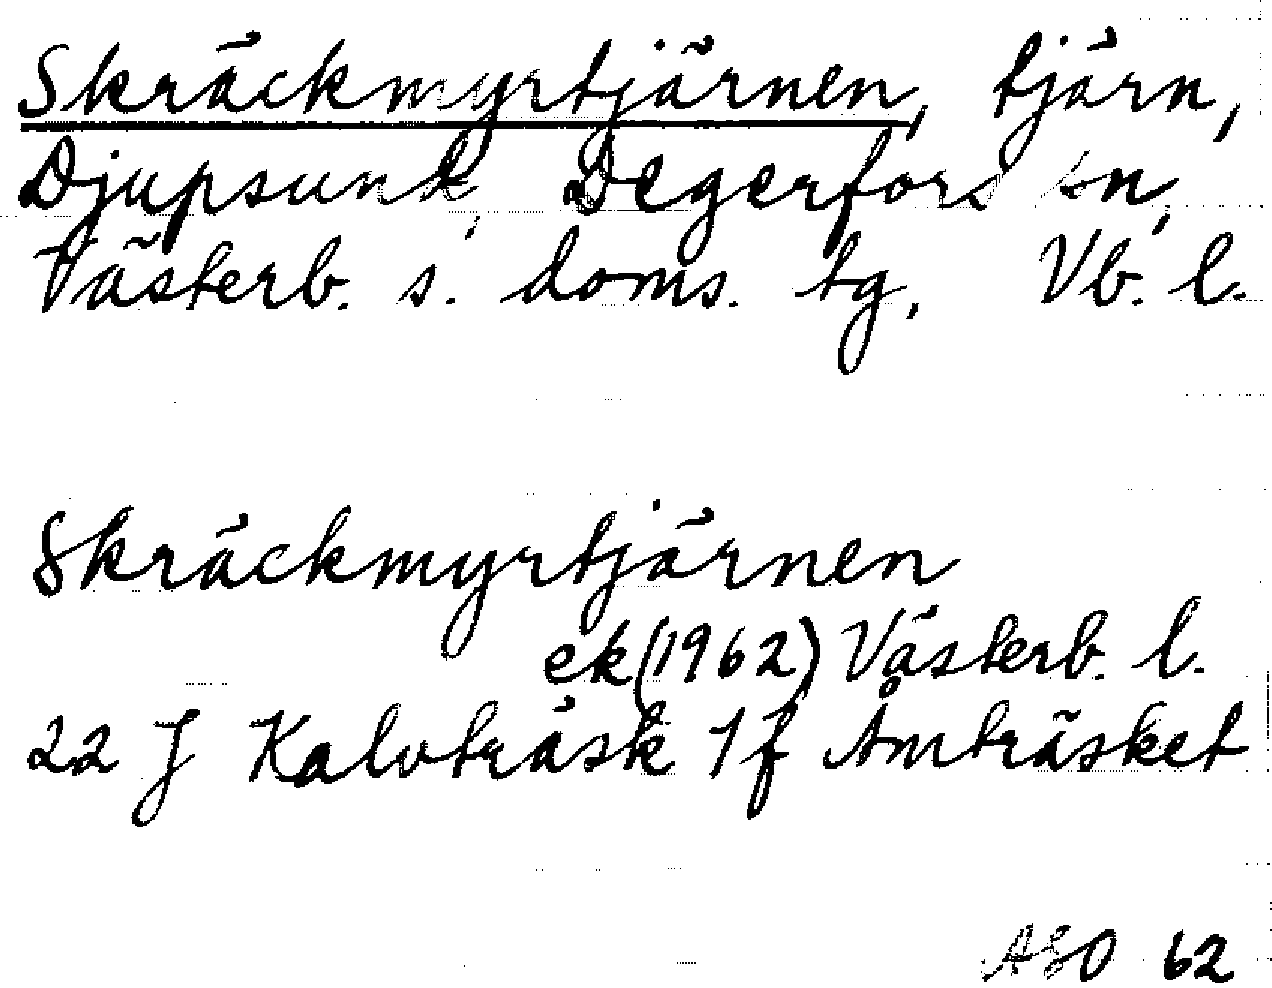 Skräckmyrtjärnen, tjärn,
Djupsund, Degerfors sn,
Västerb. s. doms. tg, Vb. l.
Skräckmyrtjärnen
ek (1962) Västerb. l.
22 J Kalvträsk 1f Åmträsket
ASO 62